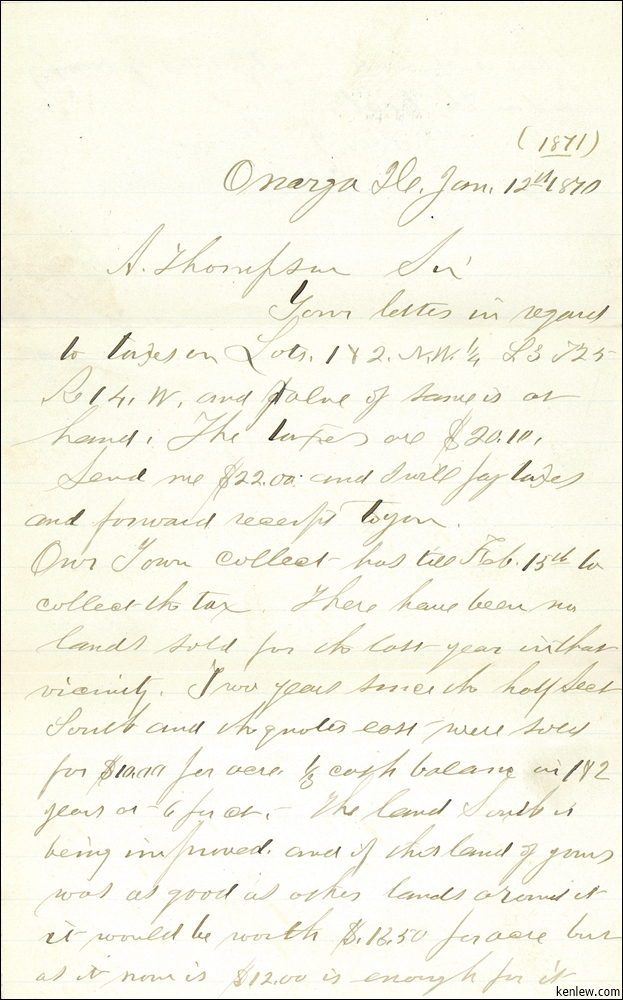 (1871)
Onarga Ill. Jan. 12th 1870
A. Thompson Sir
Your letter in regard
to taxes on Lots. 1 & 2. N.W. 1/4 S 3 T 25
R 14. W. and value of same is at
hand. The taxes are $20.10.
Send me $22.00 and I will pay taxes
and forward receipt to you.
Our Town collect has till Feb. 15th to
collect the tax. There have been no
lands sold for the last year in that
vicinity. Two years since the half Sect
South and the quarter east were sold
for $10.00 per acre 1/3 cash balance in 1 & 2
years at 6 per ct. - The land South is
being improved. and if this land of yours
was as good as other lands around it
it would be worth $.12.50 per acre but
as it now is $12.00 is enough for it
kenlew.com